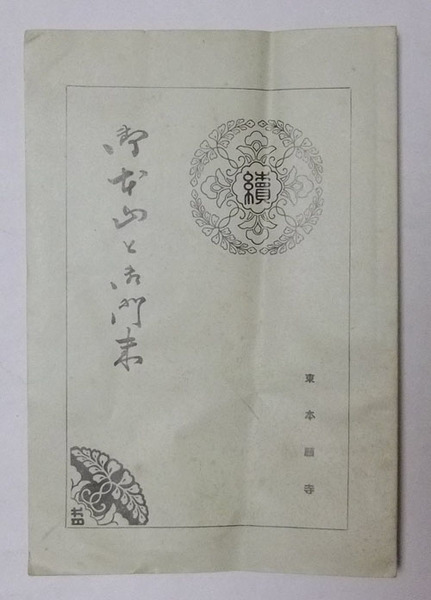 續
御本山と御門末
東本願寺